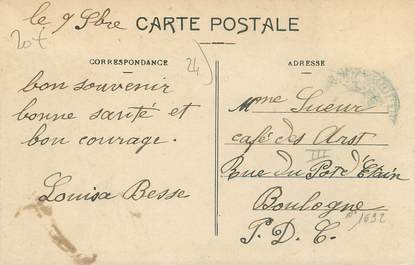 le 9 9bre
CARTE POSTALE
20f
CORRESPONDANCE
24
ADRESSE
bon souvenir
bonne santé et
bon courage.
Louisa Besse
Mme Sueur
café des Arst
III
Rue du Pot d'Etain
Boulogne
P. D. C.
1692